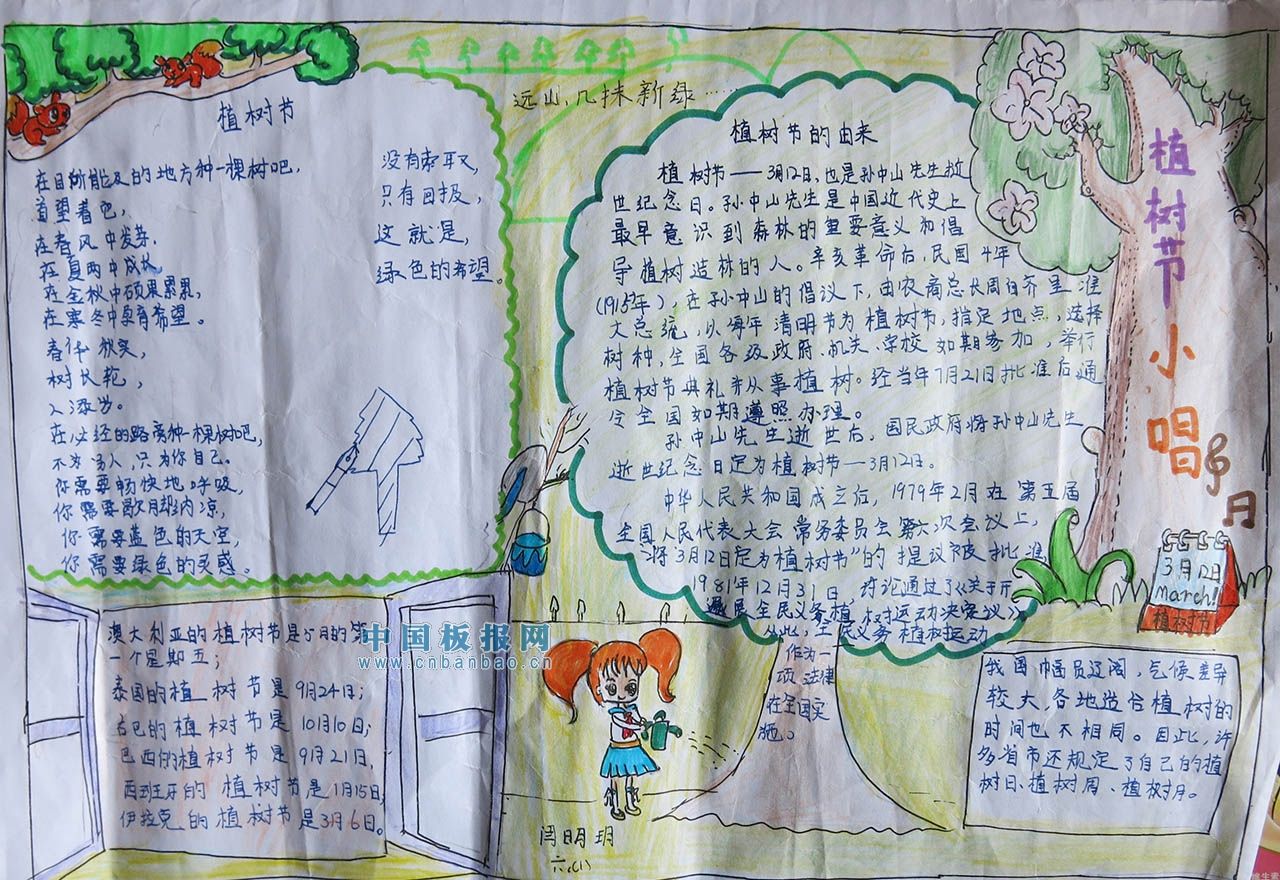 植树节
在目所能及的地方种一棵树吧,
着望着吧,
在春风中发芽,
在夏雨中成长
在金秋中硕果累累,
在寒冬中孕育希望。
春华秋实,
树长轮,
人添岁。
在必经的路旁种一棵树吧,
不为别人,只为你自己。
你需要畅快地呼吸,
你需要歇脚纳凉,
你需要蓝色的天空,
你需要绿色的灵感。
没有索取,
只有回报,
这就是,
绿色的希望。
远山,几抹新绿……
植树节的由来
植树节——3月12日,也是孙中山先生逝
世纪念日。孙中山先生是中国近代史上
最早意识到森林的重要意义和倡
导植树造林的人。辛亥革命后,民国4年
(1915年),在孙中山的倡议下,由农商总长周自齐呈准
大总统,以每年清明节为植树节,指定地点,选择
树种,全国各级政府、机关、学校如期参加,举行
植树节典礼并从事植树。经当年7月21日批准后通
令全国如期遵照办理。
孙中山先生逝世后,国民政府将孙中山先生
逝世纪念日定为植树节—3月12日。
中华人民共和国成立后,1979年2月在第五届
全国人民代表大会常务委员会第六次会议上,
“将3月12日定为植树节”的提议被批准
1981年12月31日 讨论通过了《关于开
展全民义务植树运动决议》
从此,全民义务植树运动
作为一
项法律
在全国实
施。
植树节小唱
3月12日
march!
植树节
澳大利亚的植树节是5月的第
一个星期五;
泰国的植树节是9月24日;
古巴的植树节是10月10日;
巴西的植树节是9月21日,
西班牙的植树节是1月15日,
伊拉克的植树节是3月6日。
中国板报网
www.cnbanbao.cn
闫明玥
六(1)
我国幅员辽阔,气候差异
较大,各地适合植树的
时间也不相同。因此,许
多省市还规定了自己的植
树日、植树周、植树月。